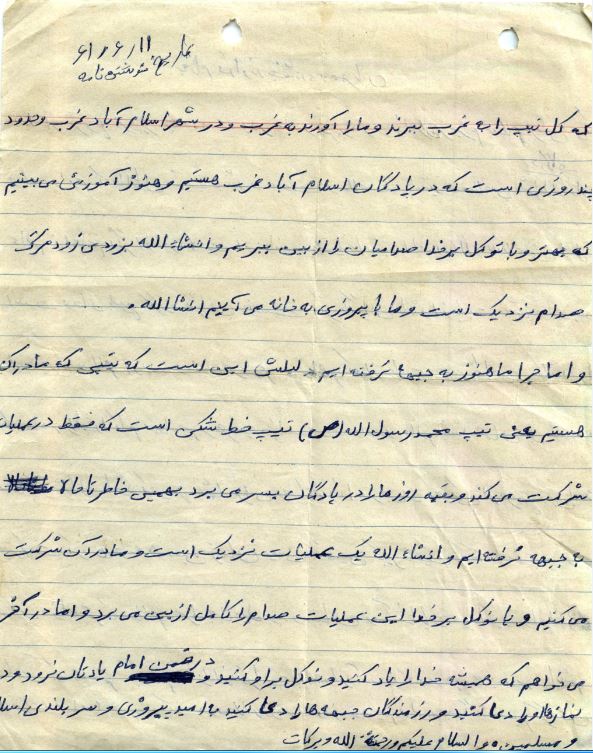 ۶۱/۶/۱۱
تاریخ نوشتن نامه
که کل تیپ را به غرب ببرند و ما را آوردند به غرب و در شهر اسلام آباد غرب و حدود
چند روزی است که در پادگان اسلام آباد غرب هستیم و هنوز آموزش می بینیم
که بهتر و با توکل بر خدا صدامیان را از بین ببریم و انشاء الله بزودی زود مرگ
صدام نزدیک است و ما با پیروزی به خانه می آییم انشا الله .
و اما چرا ما هنوز به جبهه نرفته ایم دلیلش این است که تیپی که ما در آن
هستیم یعنی تیپ محمد رسول الله (ص) تیپ خط شکن است که فقط در عملیات
شرکت می کند و بقیه روزها را در پادگان بسر می برد بهمین خاطر تا حالا
به جبهه نرفته ایم و انشاء الله یک عملیات نزدیک است و ما در آن شرکت
می کنیم و با توکل بر خدا این عملیات صدام را کامل از بین می برد و اما در آخر
می خواهم که همیشه خدا را یاد کنید و توکل بر او کنید و در ضمن امام یادتان نرود و در
نمازها او را دعا کنید و رزمندگان جبهه ها را دعا کنید به امید پیروزی و سر بلندی اسلام
و مسلمین والسلام علیکم و رحمة الله و برکات